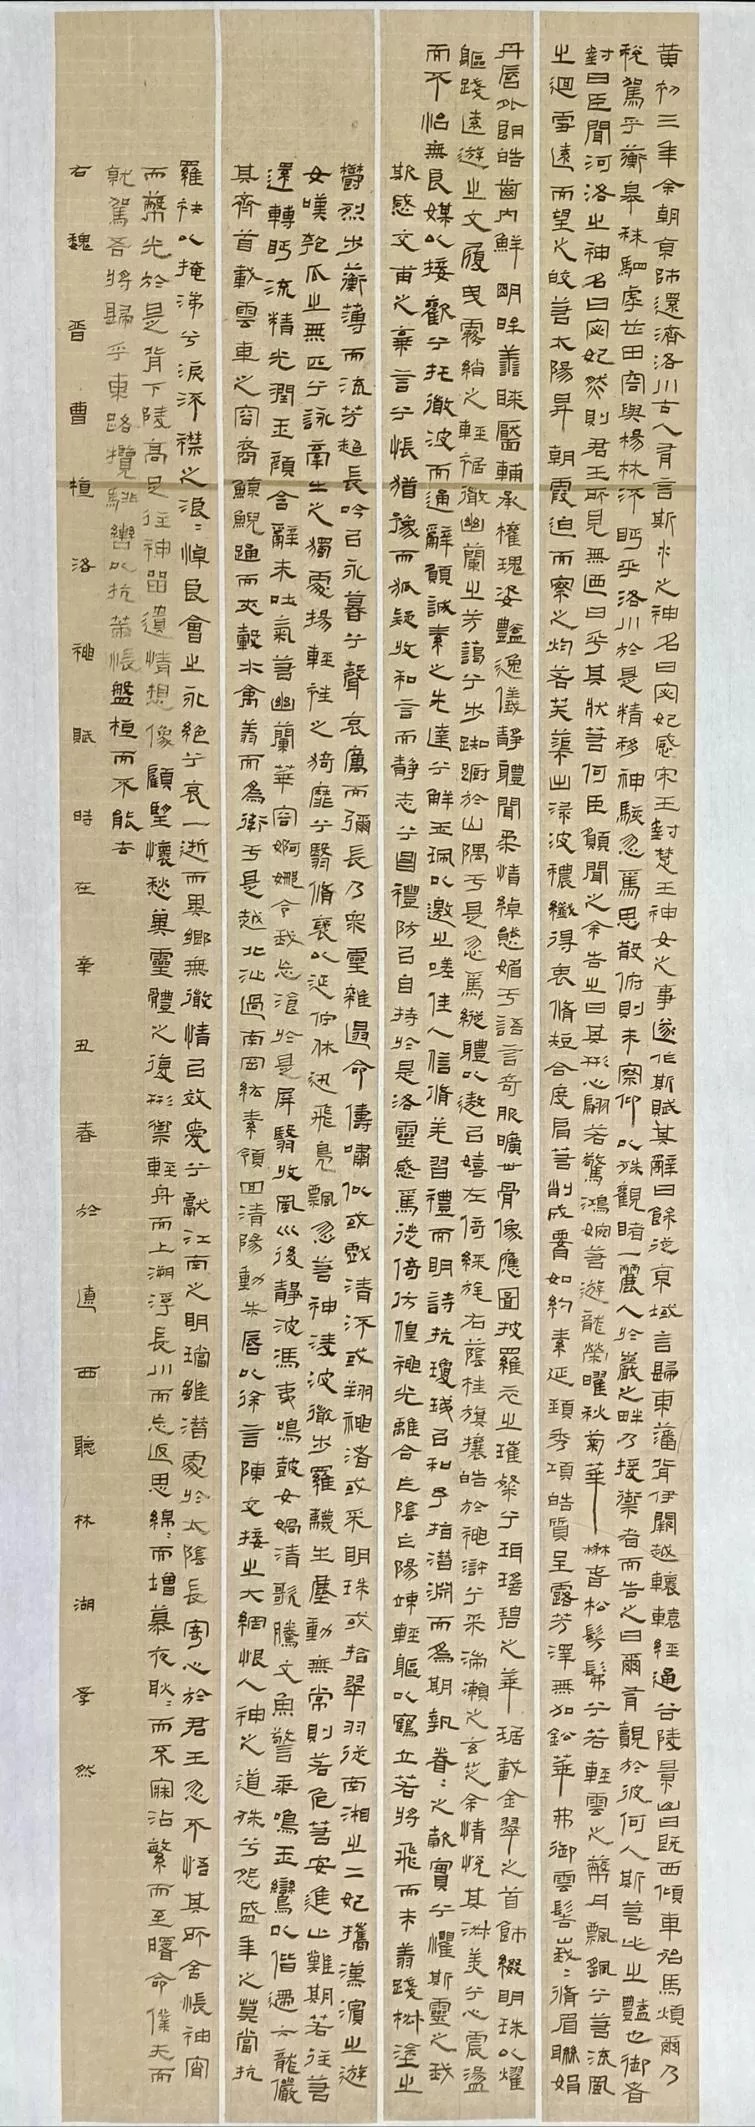 黄初三年余朝京師還濟洛川古人有言斯水之神名曰宓妃感宋玉對楚王神女之事遂作斯賦其辭曰餘從京域言歸東藩背伊闕越轘轅經通谷陵景山日既西傾車殆馬煩爾乃
稅駕乎蘅皋秣駟乎芝田容與楊林流眄乎洛川於是精移神駭忽焉思散俯則未察仰以殊觀睹一麗人於巖之畔乃援禦者而告之曰爾有覿於彼何人斯若此之豔也御者
對曰臣聞河洛之神名曰宓妃然則君王所見無迺日乎其狀若何臣願聞之余告之曰其形也翩若驚鴻婉若遊龍榮曜秋菊華茂春松髣髴兮若輕雲之蔽月飄飖兮若流風
之迴雪遠而望之皎若太陽昇朝霞迫而察之灼若芙蕖出淥波穠纖得衷脩短合度肩若削成腰如約素延頸秀項皓質呈露芳澤無加鉛華弗御雲髻峩〻脩眉聯娟
丹唇外朗皓齒內鮮明眸善睞靨輔承權瑰姿豔逸儀靜體閑柔情綽態媚於語言奇服曠世骨像應圖披羅衣之璀粲兮珥瑤碧之華琚戴金翠之首飾綴明珠以耀
軀踐遠遊之文履曳霧綃之輕裾微幽蘭之芳藹兮步踟躕於山隅於是忽焉縱體以遨以嬉左倚綵旄右蔭桂旗攘皓於神滸兮采湍瀨之玄芝余情悅其淑美兮心震盪
而不怡無良媒以接歡兮托微波而通辭願誠素之先達兮解玉珮以邀之嗟佳人信脩羌習禮而明詩抗瓊珶以和予指潛淵而為期執眷〻之款實兮懼斯靈之我
欺感交甫之棄言兮悵猶豫而狐疑收和言而靜志兮申禮防以自持於是洛靈感焉徙倚彷徨神光離合乍陰乍陽竦輕軀以鶴立若將飛而未翔踐椒塗之
鬱烈步蘅薄而流芳超長吟以永慕兮聲哀厲而彌長乃衆靈雜遝命儔嘯侶或戲清流或翔神渚或采明珠或拾翠羽從南湘之二妃攜漢濱之遊
女嘆匏瓜之無匹兮詠牽牛之獨處揚輕袿之猗靡兮翳脩袖以延佇休迅飛鳧飄忽若神淩波微步羅韈生塵動無常則若危若安進止難期若往若
還轉眄流精光潤玉顏含辭未吐氣若幽蘭華容婀娜令我忘飡於是屏翳收風川後靜波馮夷鳴鼓女媧清歌騰文魚警乘鳴玉鸞以偕逝六龍儼
其齊首載雲車之容裔鯨鯢踴而夾轂水禽翔而為衛於是越北沚過南岡紆素領回清陽動朱唇以徐言陳交接之大綱恨人神之道殊兮怨盛年之莫當抗
羅袂以掩涕兮淚流襟之浪〻悼良會之永絕兮哀一逝而異鄉無微情以效愛兮獻江南之明璫雖潛處於太陰長寄心於君王忽不悟其所舍悵神宵
而蔽光於是背下陵高足往神留遺情想像顧望懷愁冀靈體之復形禦輕舟而上溯浮長川而忘返思綿〻而增慕夜耿〻而不寐沾繁而至曙命僕夫而
就駕吾將歸乎東路攬騑轡以抗策悵盤桓而不能去
右魏晉曹植洛神賦時在辛丑春於 西聽林湖 然